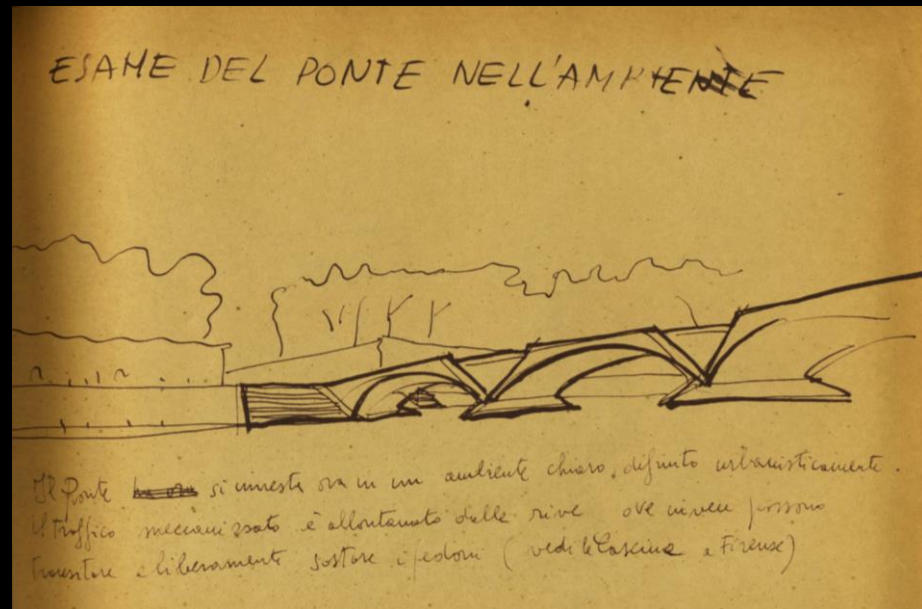 ESAME DEL PONTE NELL'AMBIENTE
Il Ponte si innesta ora in un ambiente chiaro, definito urbanisticamente.
il traffico meccanizzato è allontanato dalle rive ove invece possono
transitare e liberamente sostare i pedoni (vedi le Cascine a Firenze)